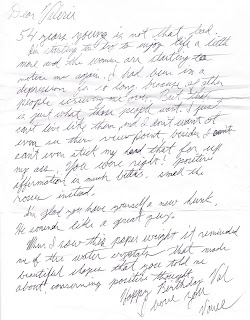 Dear Valerie
54 years young is not that old.
I'm starting to try to enjoy life a little
more and the women are starting to
notice me again. I had been in a
depression for so long because of other
people screwing me over. But that
is just what those people want. I just
can't live like them, and I don't want to
even see them view point, besides I
can't even stick my head that far up
my ass. You were right! positive
affirmation is much better. smell the
roses instead.
I'm glad you have yourself a new hunk.
He sounds like a great guy.
When I saw this paper weight it reminded
me of the water voyager that made
beautiful shapes that you told me
about concerning positive thought.
Happy Birthday Val
love you